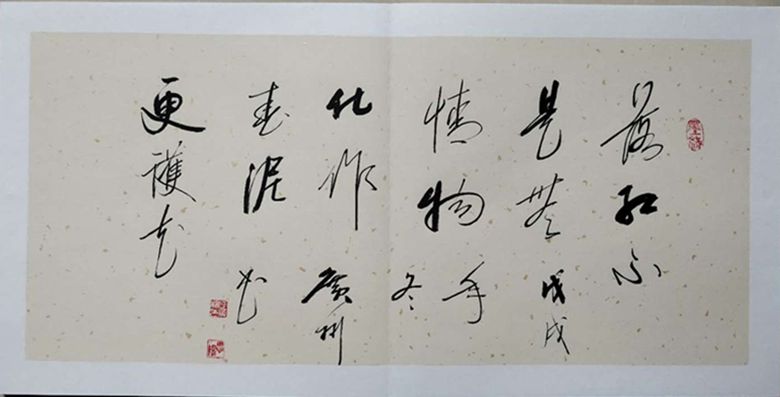 落红不
是無
情物
化作
春泥
更護花
戊戌
年
冬
廣州
书